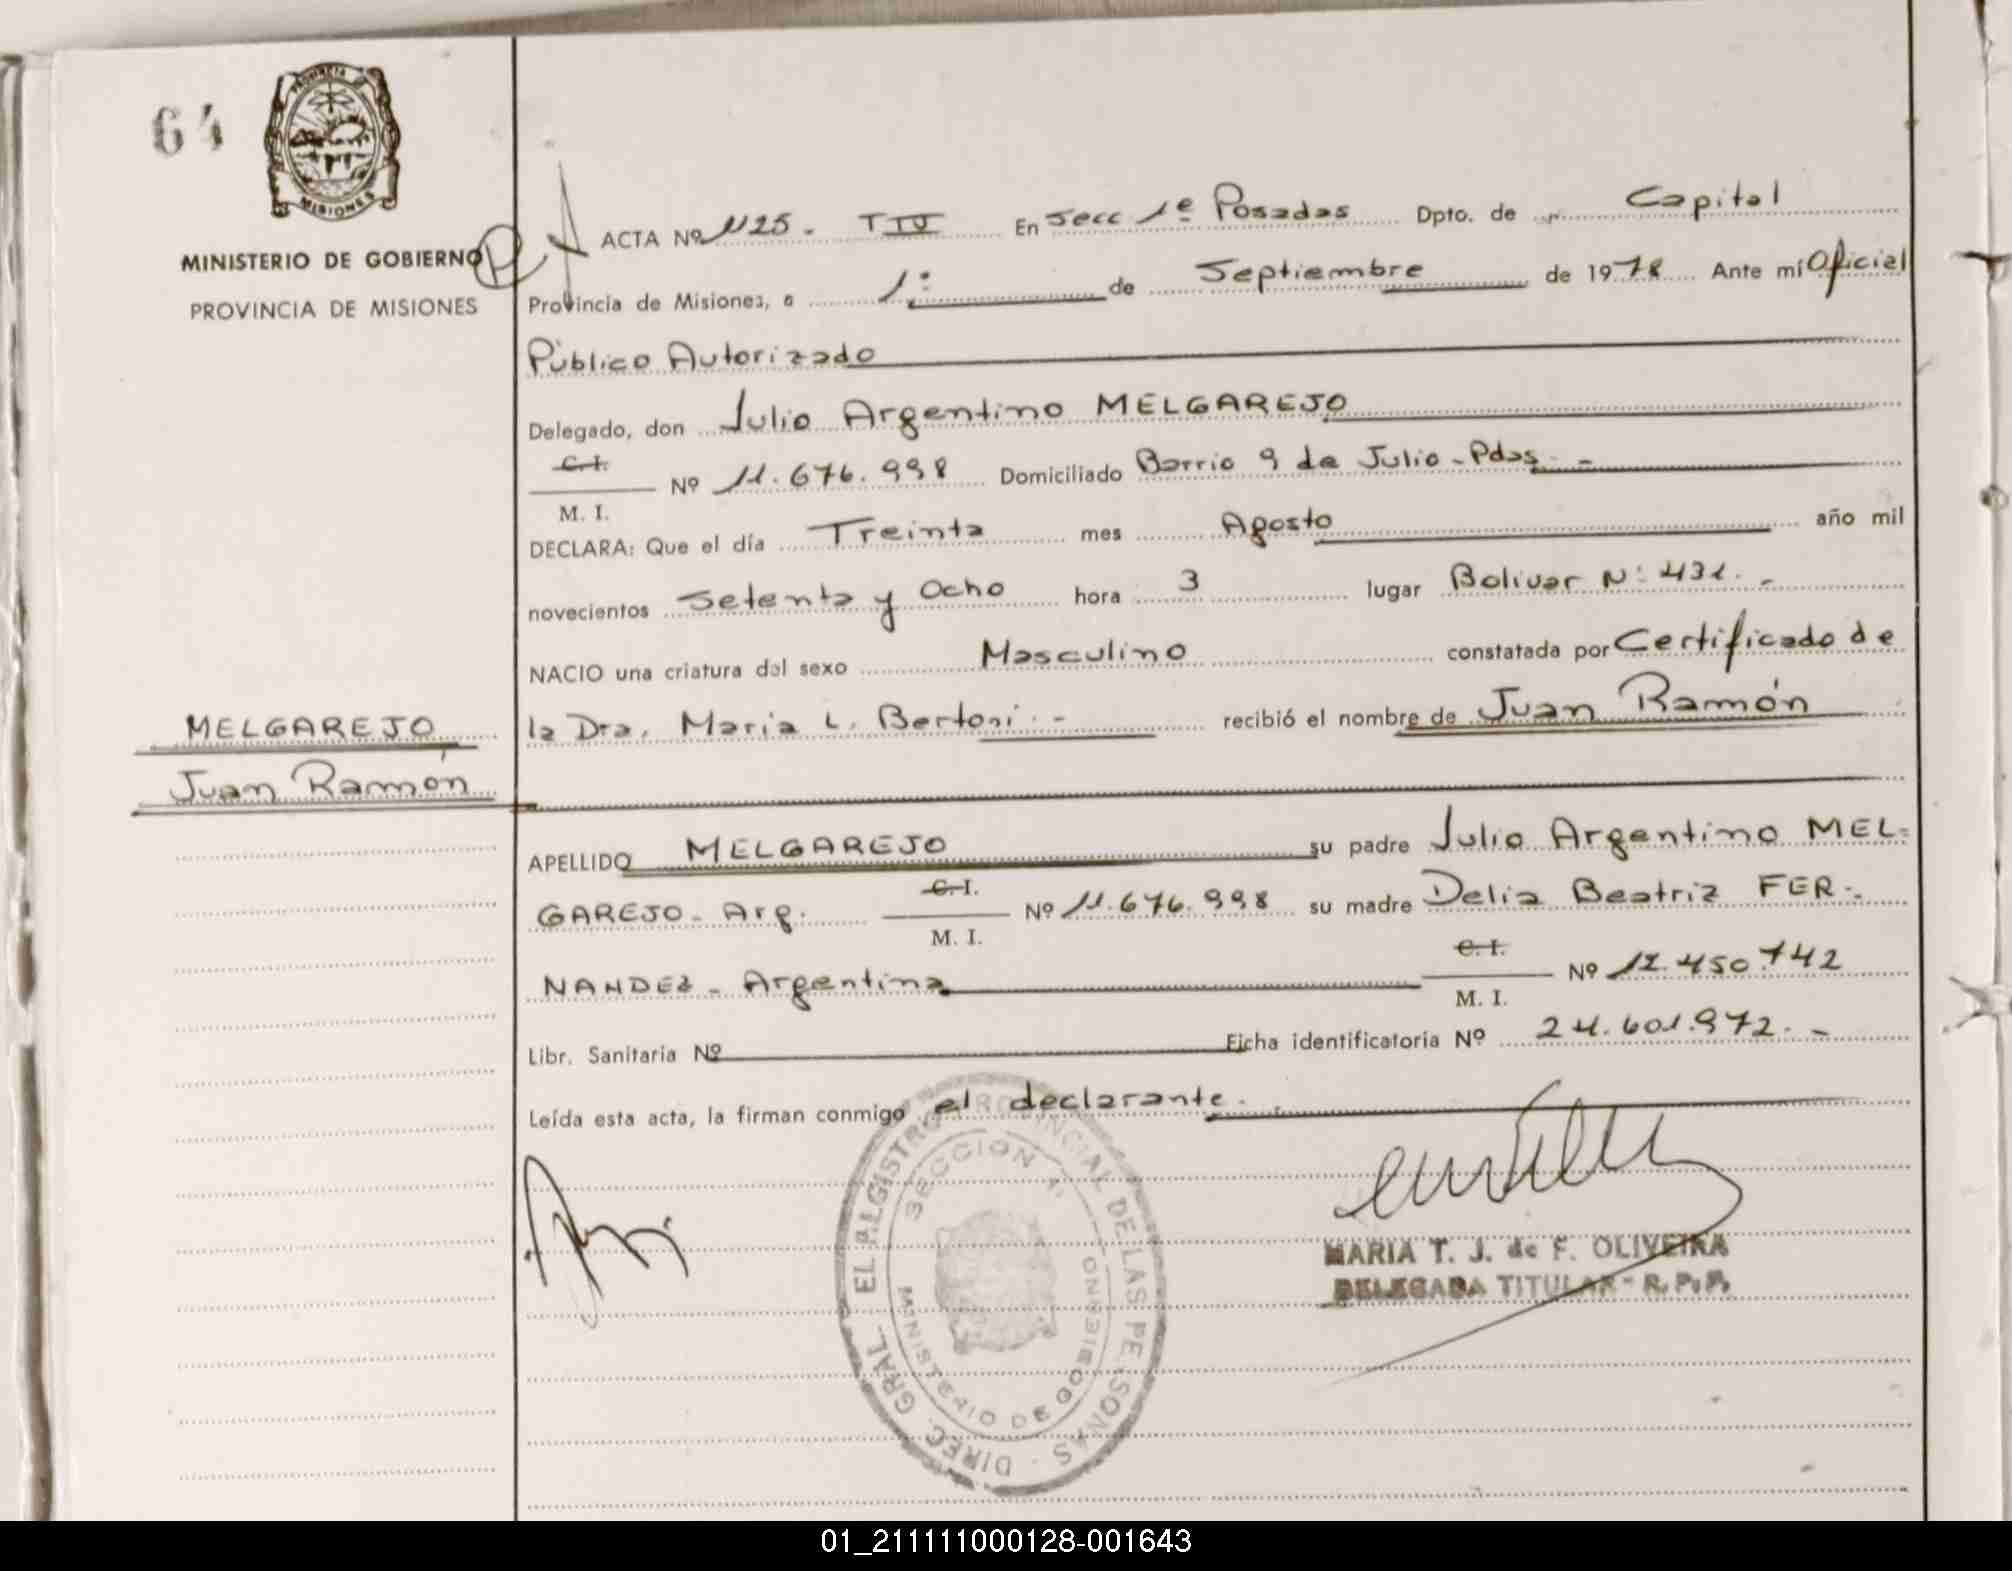 64
PROVINCIA
MISIONES
MINISTERIO DE GOBIERNO
PROVINCIA DE MISIONES
ACTA Nº 1125. TIV En Secc 1ª Posadas Dpto. de Capital
Provincia de Misiones, a 1º de Septiembre de 1978 Ante mí Oficial
Público Autorizado
Delegado, don Julio Argentino MELGAREJO
C. I.
Nº 11.676.998 Domiciliado Barrio 9 de Julio - Pdas. -
M. I.
DECLARA: Que el día Treinta mes Agosto año mil
novecientos Setenta y Ocho hora 3 lugar Bolivar Nº 431. -
NACIO una criatura del sexo Masculino constatada por Certificado de
la Dra. Maria L. Bertoni. - recibió el nombre de Juan Ramón
MELGAREJO
Juan Ramón
APELLIDO MELGAREJO su padre Julio Argentino MEL=
GAREJO - Arg. C. I. Nº 11.676.998 su madre Delia Beatriz FER-
M. I.
NANDEZ - Argentina C. I. Nº 12.450.742
M. I.
Libr. Sanitaria Nº Ficha identificatoria Nº 24.601.972. -
Leída esta acta, la firman conmigo el declarante.
DIREC. GRAL. EL REGISTRO PROVINCIAL DE LAS PERSONAS
SECCION 1ª
MINISTERIO DE GOBIERNO
MARIA T. J. de F. OLIVEIRA
DELEGADA TITULAR - R. P. P.
01_211111000128-001643